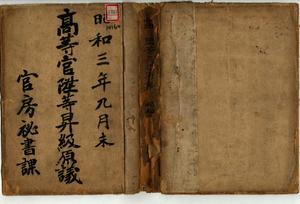 昭和三年九月末
高等官陞等昇級原議
官房秘書課